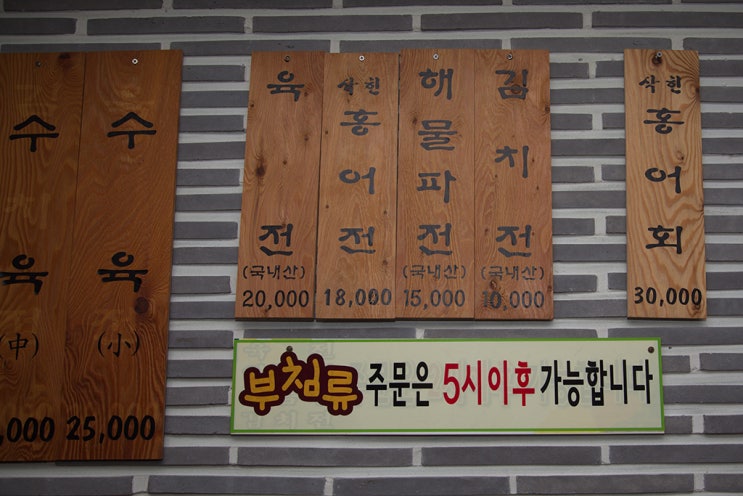 수육
(中)
,000
수육
(小)
25,000
육전
(국내산)
20,000
삭힌
홍어전
18,000
해물파전
(국내산)
15,000
김치전
(국내산)
10,000
삭힌
홍어회
30,000
부침류 주문은 5시이후 가능합니다